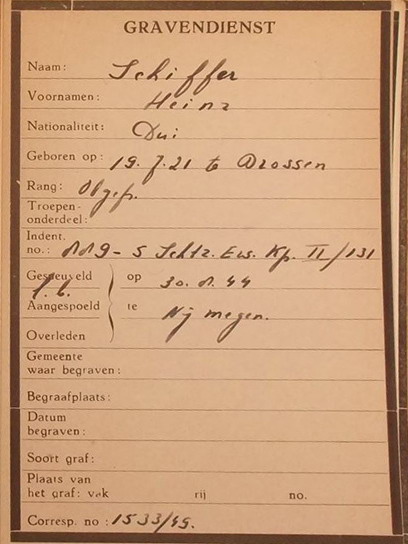 GRAVENDIENST
Naam: Schiffer
Voornamen: Heinz
Nationaliteit: Dui
Geboren op: 19.7.21 te Drossen
Rang: Obgefr.
Troepen-
onderdeel:
Indent.
no.: 889- S Schtz. Ers. Kp. II/131
Gesneuveld } op 30.8.44
Aangespoeld } te Nijmegen.
Overleden
Gemeente
waar begraven:
Begraafplaats:
Datum
begraven:
Soort graf:
Plaats van
het graf: vak rij no.
Corresp. no: 1533/45.